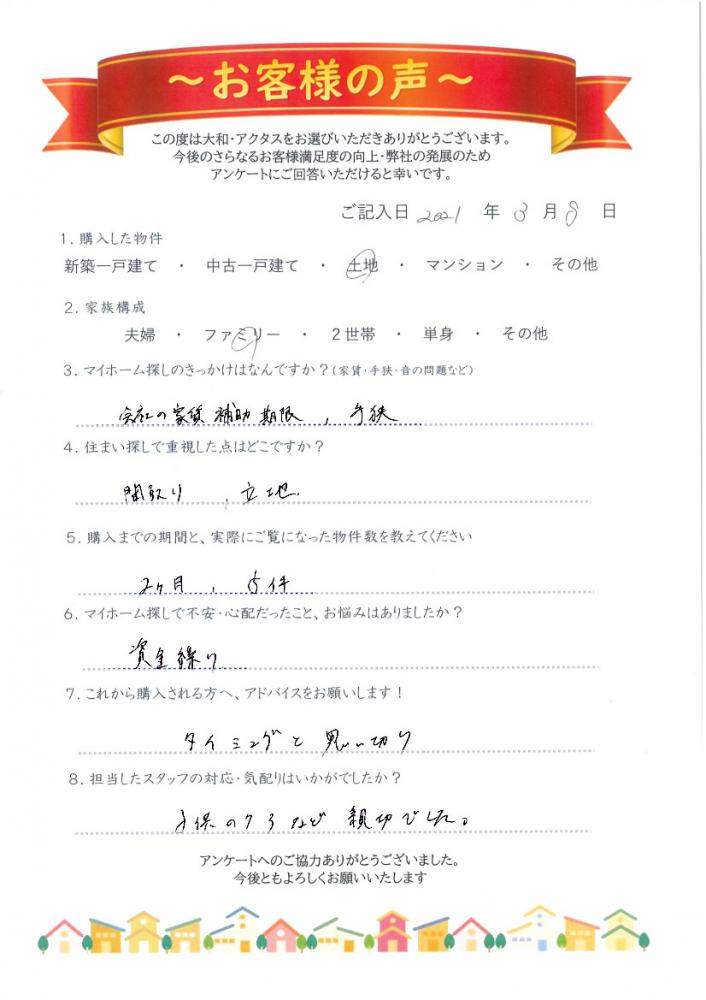 ～お客様の声～
この度は大和・アクタスをお選びいただきありがとうございます。
今後のさらなるお客様満足度の向上・弊社の発展のため
アンケートにご回答いただけると幸いです。
ご記入日 2021 年 3 月 8 日
1. 購入した物件
新築一戸建て ・ 中古一戸建て ・ 土地 ・ マンション ・ その他
2. 家族構成
夫婦 ・ ファミリー ・ 2世帯 ・ 単身 ・ その他
3. マイホーム探しのきっかけはなんですか？(家賃・手狭・音の問題など)
会社の家賃補助期限、手狭
4. 住まい探しで重視した点はどこですか？
間取り、立地
5. 購入までの期間と、実際にご覧になった物件数を教えてください
2ヶ月、5件
6. マイホーム探しで不安・心配だったこと、お悩みはありましたか？
資金繰り
7. これから購入される方へ、アドバイスをお願いします！
タイミングと思い切り
8. 担当したスタッフの対応・気配りはいかがでしたか？
など 親切でした。
アンケートへのご協力ありがとうございました。
今後ともよろしくお願いいたします